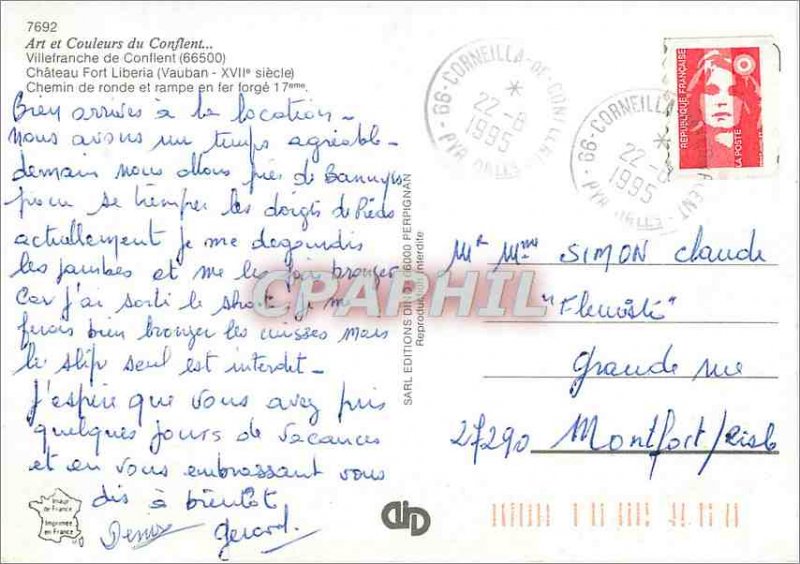 7692
Art et Couleurs du Conflent...
Villefranche de Conflent (66500)
Château Fort Liberia (Vauban - XVIIe siècle)
Chemin de ronde et rampe en fer forgé 17eme.
Bien arrivés à la location -
nous avons un temps agréable -
demain nous allons près de Banyuls
pour se tremper les doigts de Pieds
actuellement je me degourdis
les jambes et me les fais bronzer
Car j'ai sorti le short. je me
ferais bien bronzer les cuisses mais
le slip seul est interdit -
J'espère que vous avez pris
quelques jours de vacances
et en vous embrassant vous
dis à bientôt
Denise Gerard
Image de France
Imprimée en France
SARL EDITIONS DINO 66000 PERPIGNAN
Reproduction interdite
CPAPHIL
66 - CORNEILLA-DE-CONFLENT
22 -8
1995
PYR. ORLES
66 - CORNEILLA
22 -8
1995
PYR. ORLES
RÉPUBLIQUE FRANÇAISE
LA POSTE
Mr Mme SIMON Claude
"Fleuriste"
Grande rue
27290 Montfort/Risle